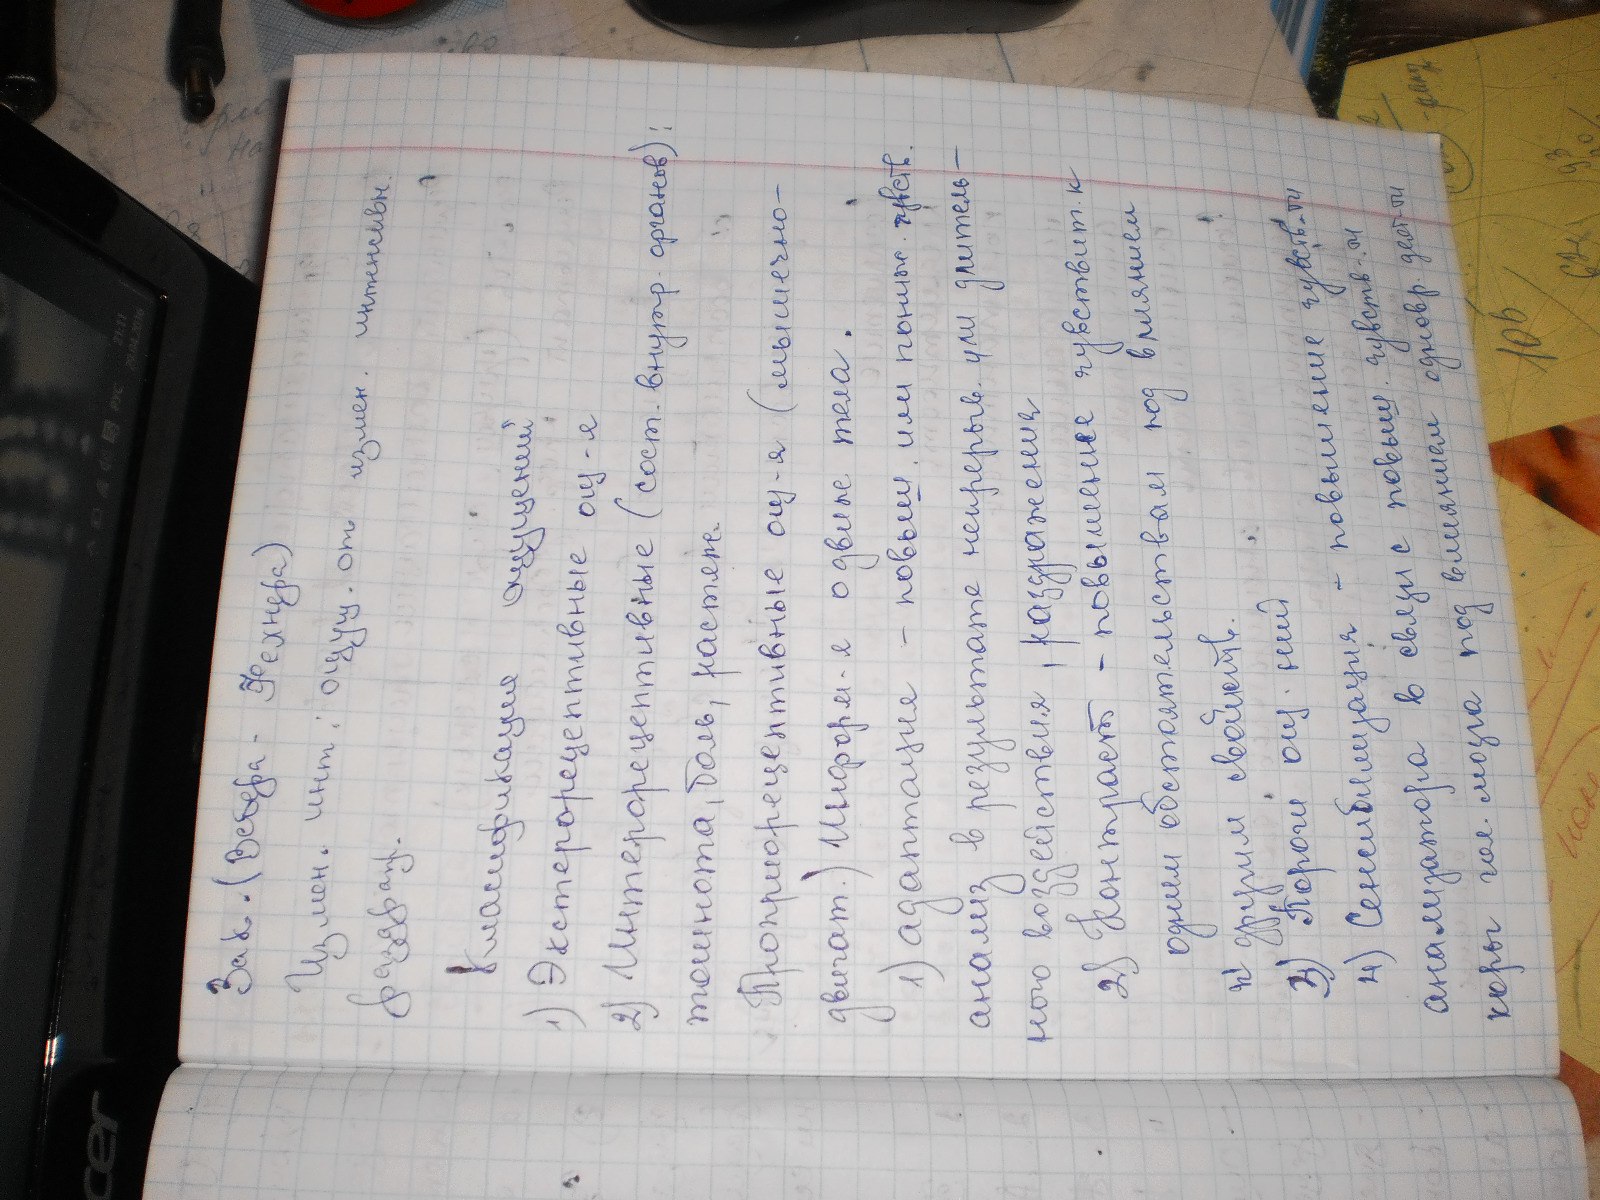 Зак. (Вебера - Фехнера)
Измен. инт. ощущ. от измен. интенсивн.
раздраж.
Класификация ощущений
1) Экстерорецептивные ощ-я
2) Интерорецептивные (сост. внутр. органов):
тошнота, боль, растяж.
Проприорецептивные ощ-я (мышечно-
двигат.) Информ-я о движ тела.
1) адаптация - повыш. или пониж. чувств.
анализ в результате непрерыв. или длитель-
ного воздействия, раздражения
2) Контраст - повышение чувствит. к
одним обстоятельствам под влиянием
др. свойств.
3) Пороги ощ-ний
4) Сенсибилизация - повышение чувств-ти
анализатора в связи с повыш. чувств-ти
коры гол. мозга под влиянием одновр. деят-ти
acer